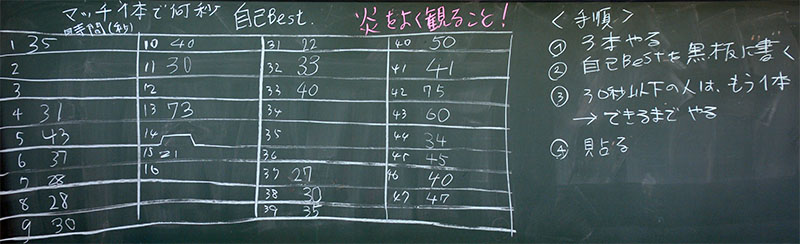 マッチ1本で何秒 自己Best. 炎をよく観ること!
時間(秒)
1 35
2
3
4 31
5 43
6 37
7 28
8 28
9 30
10 40
11 30
12
13 73
14
15 21
16
31 22
32 33
33 40
34
35
36
37 27
38 30
39 35
40 50
41 41
42 75
43 60
44 34
45 45
46 40
47 47
<手順>
① 3本やる
② 自己Bestを黒板に書く
③ 30秒以下の人は、もう1本
→ できるまでやる
④ 貼る